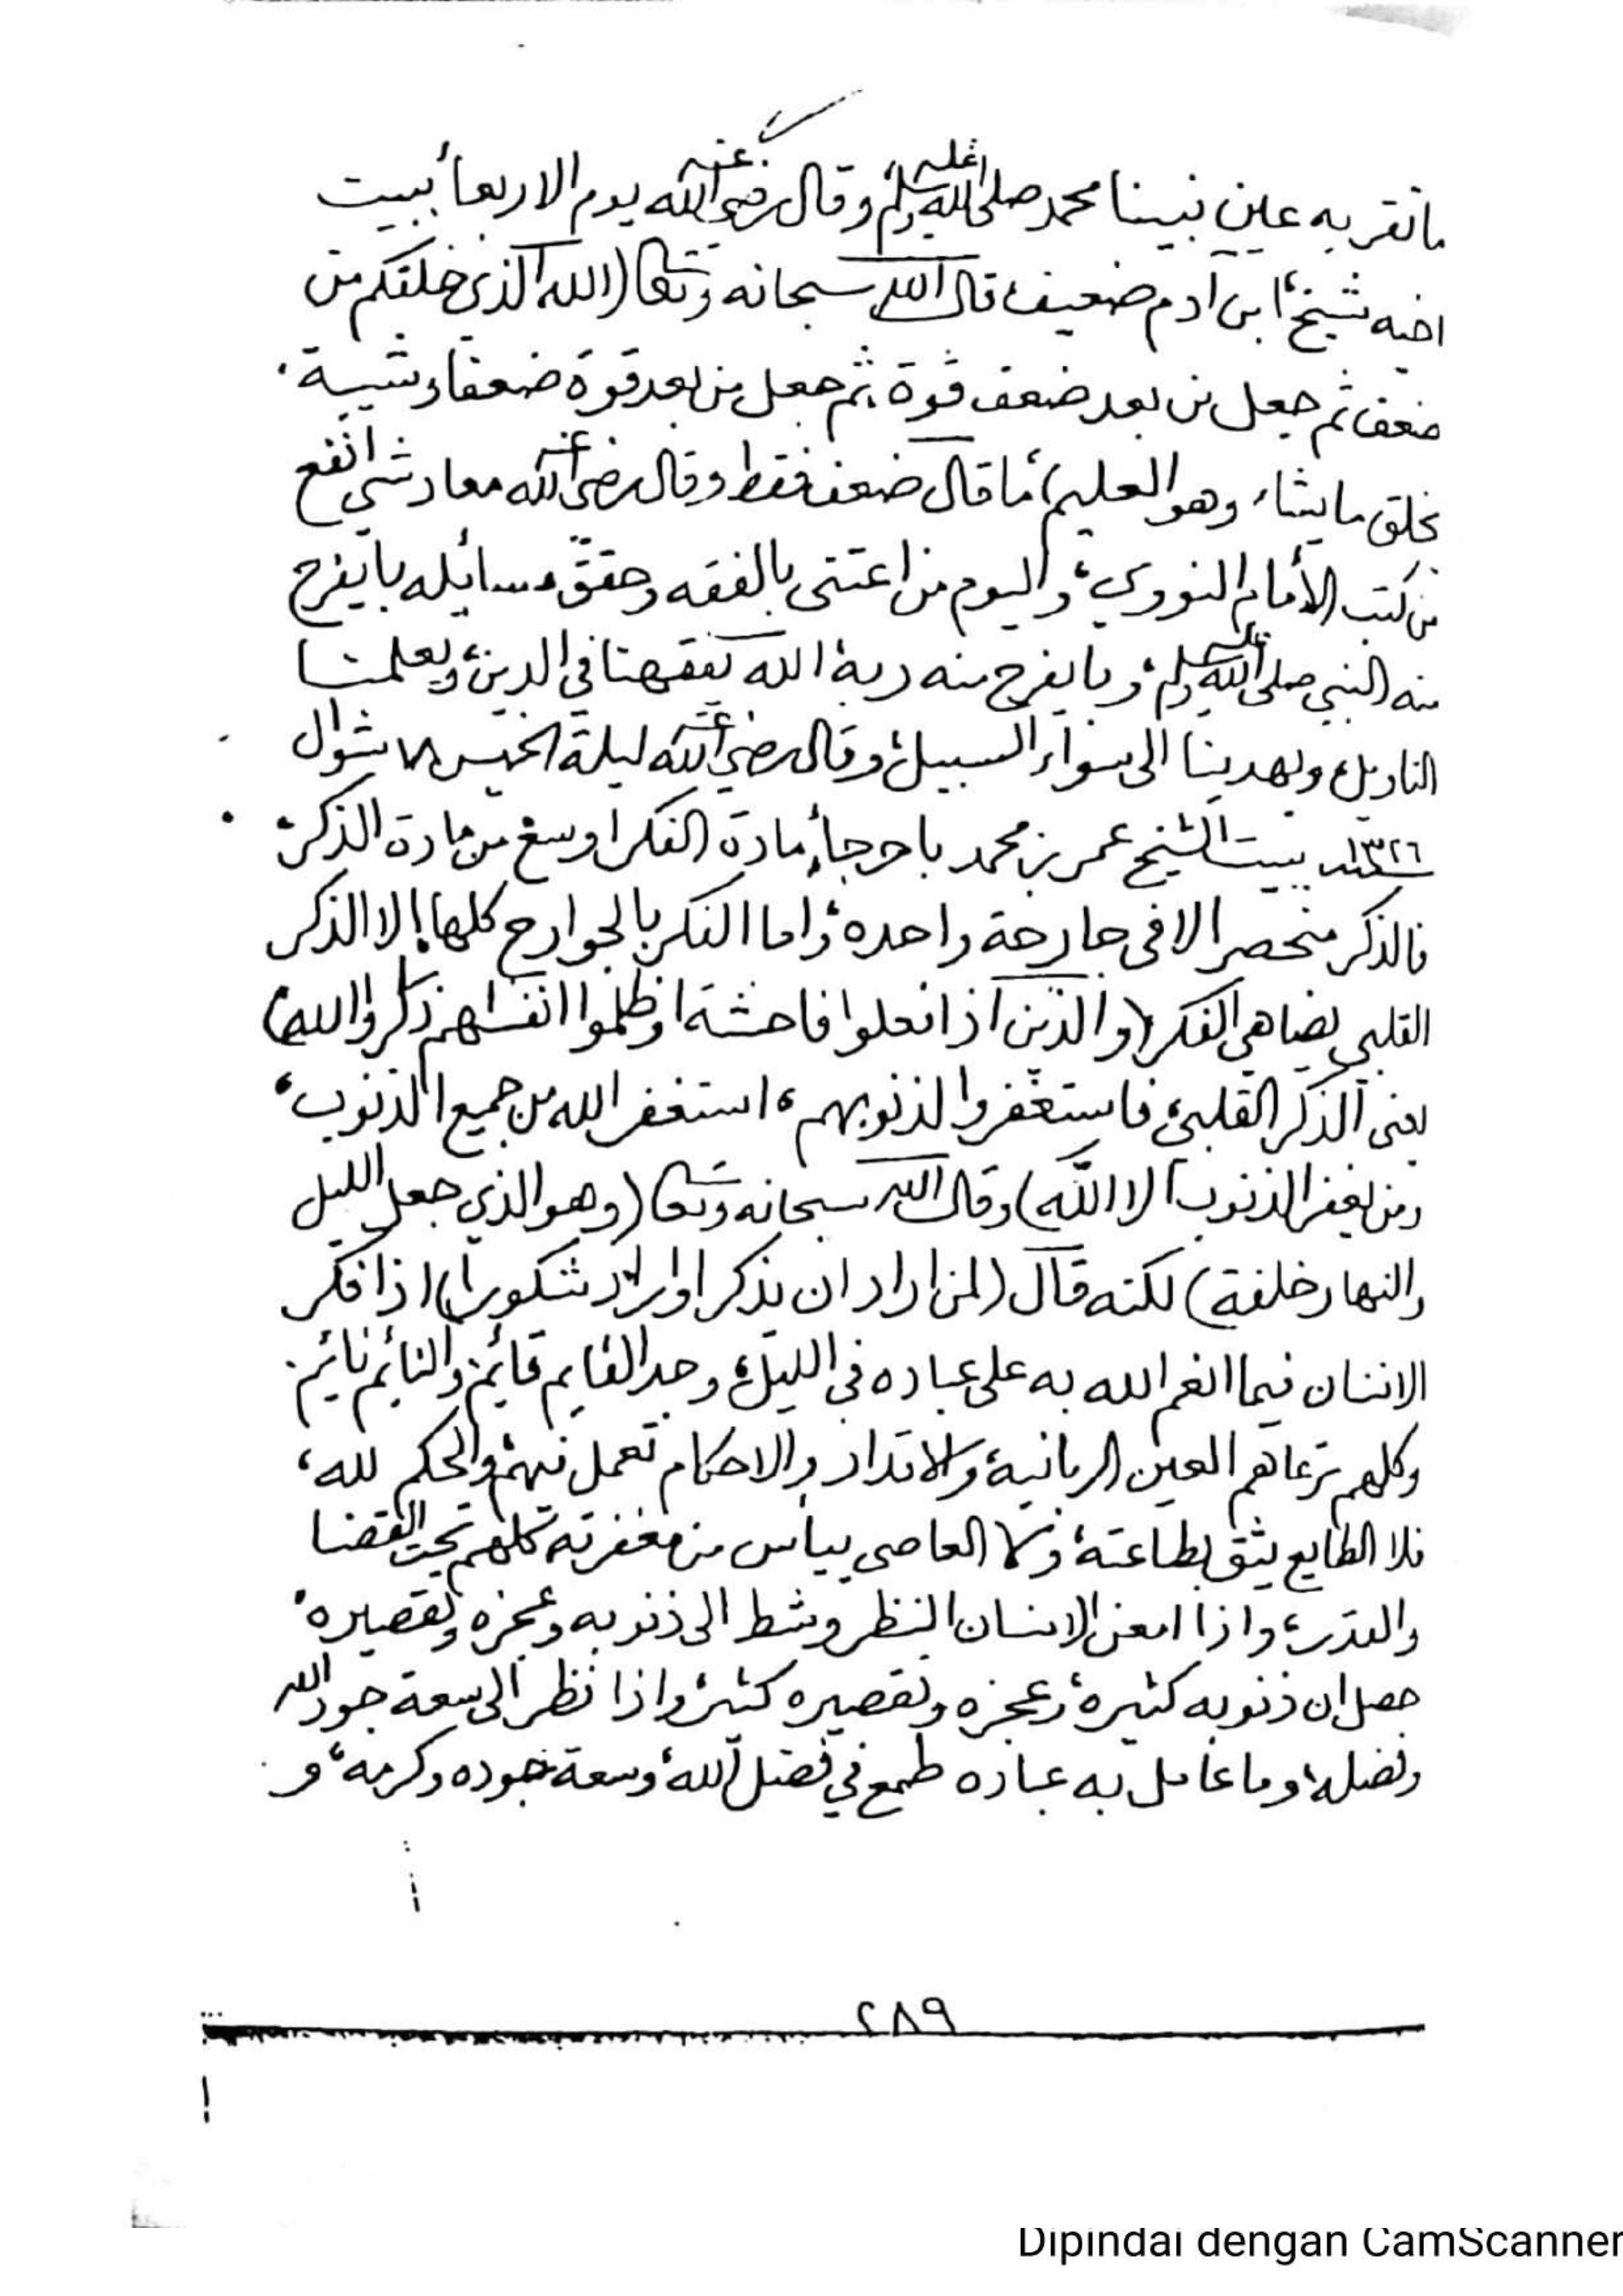 ما تقر به عين نبينا محمد صلى الله عليه وسلم، وقال رضي الله عنه يوم الاربعاء ببيت
اخيه شيخ، ابن ادم ضعيف قال الله سبحانه وتعالى (الله الذي خلقكم من
ضعف ثم جعل من بعد ضعف قوة ثم جعل من بعد قوة ضعفا وشيبة
يخلق ما يشاء وهو العليم) ما قال ضعف فقط وقال رضي الله عنه معاد شي انفع
من كتب الأمام النووي، واليوم من اعتنى بالفقه وحقق مسائله بايفرح
منه النبي صلى الله عليه وسلم، وبايفرح منه ربه، الله يفقهنا في الدين، ويعلمنا
التاويل، ويهدينا الى سواء السبيل، وقال رضي الله عنه ليلة الخميس ١٧ شوال
سنة ١٣٢٦ ببيت الشيخ عمر بن محمد باحرجأ، مادة الفكر اوسع من مادة الذكر،
فالذكر منحصر الا في جارحة واحده، واما الفكر بالجوارح كلها، إلا الذكر
القلبي يضاهي الفكر (والذين اذا فعلوا فاحشة او ظلموا انفسهم ذكروا الله)
يعني الذكر القلبي، فاستغفروا لذنوبهم، استغفر الله من جميع الذنوب،
ومن يغفر الذنوب الا الله) وقال الله سبحانه وتعالى (وهو الذي جعل الليل
والنهار خلفة) لكنه قال (لمن اراد ان يذكر او اراد شكورا) اذا فكر
الانسان فيما انعم الله به على عباده في الليل، وجد القايم قائم، والنايم نائم
وكلهم ترعاهم العين الربانية، والاقدار والاحكام تعمل فيهم، والحكم لله،
فلا الطايع يثق بطاعته، ولا العاصي ييأس من مغفرته كلهم تحت القضا
والقدر، واذا امعن الانسان النظر وشط الى ذنوبه وعجزه وتقصيره
حصل ان ذنوبه كثيرة، وعجزه وتقصيره كثير، واذا نظر الى سعة جود الله
وفضله، وما عامل به عباده طمع في فضل الله، وسعة جوده وكرمه، و
٢٨٩
Dipindai dengan CamScanner